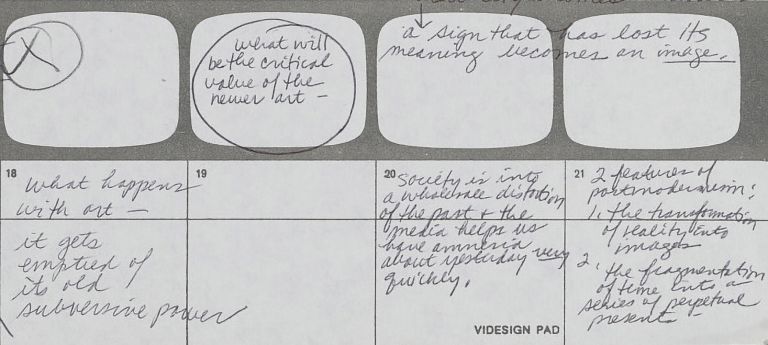 what will
be the critical
value of the
newer art —
a sign that has lost its
meaning becomes an image.
18
what happens
with art —
it gets
emptied of
its old
subversive power
19
20
Society is into
a wholesale distortion
of the past + the
media helps us
have amnesia
about yesterday very
quickly.
21
2 features of
postmodernism:
1. the transformation
of reality into
images
2. the fragmentation
of time into a
series of perpetual
presents —
VIDESIGN PAD